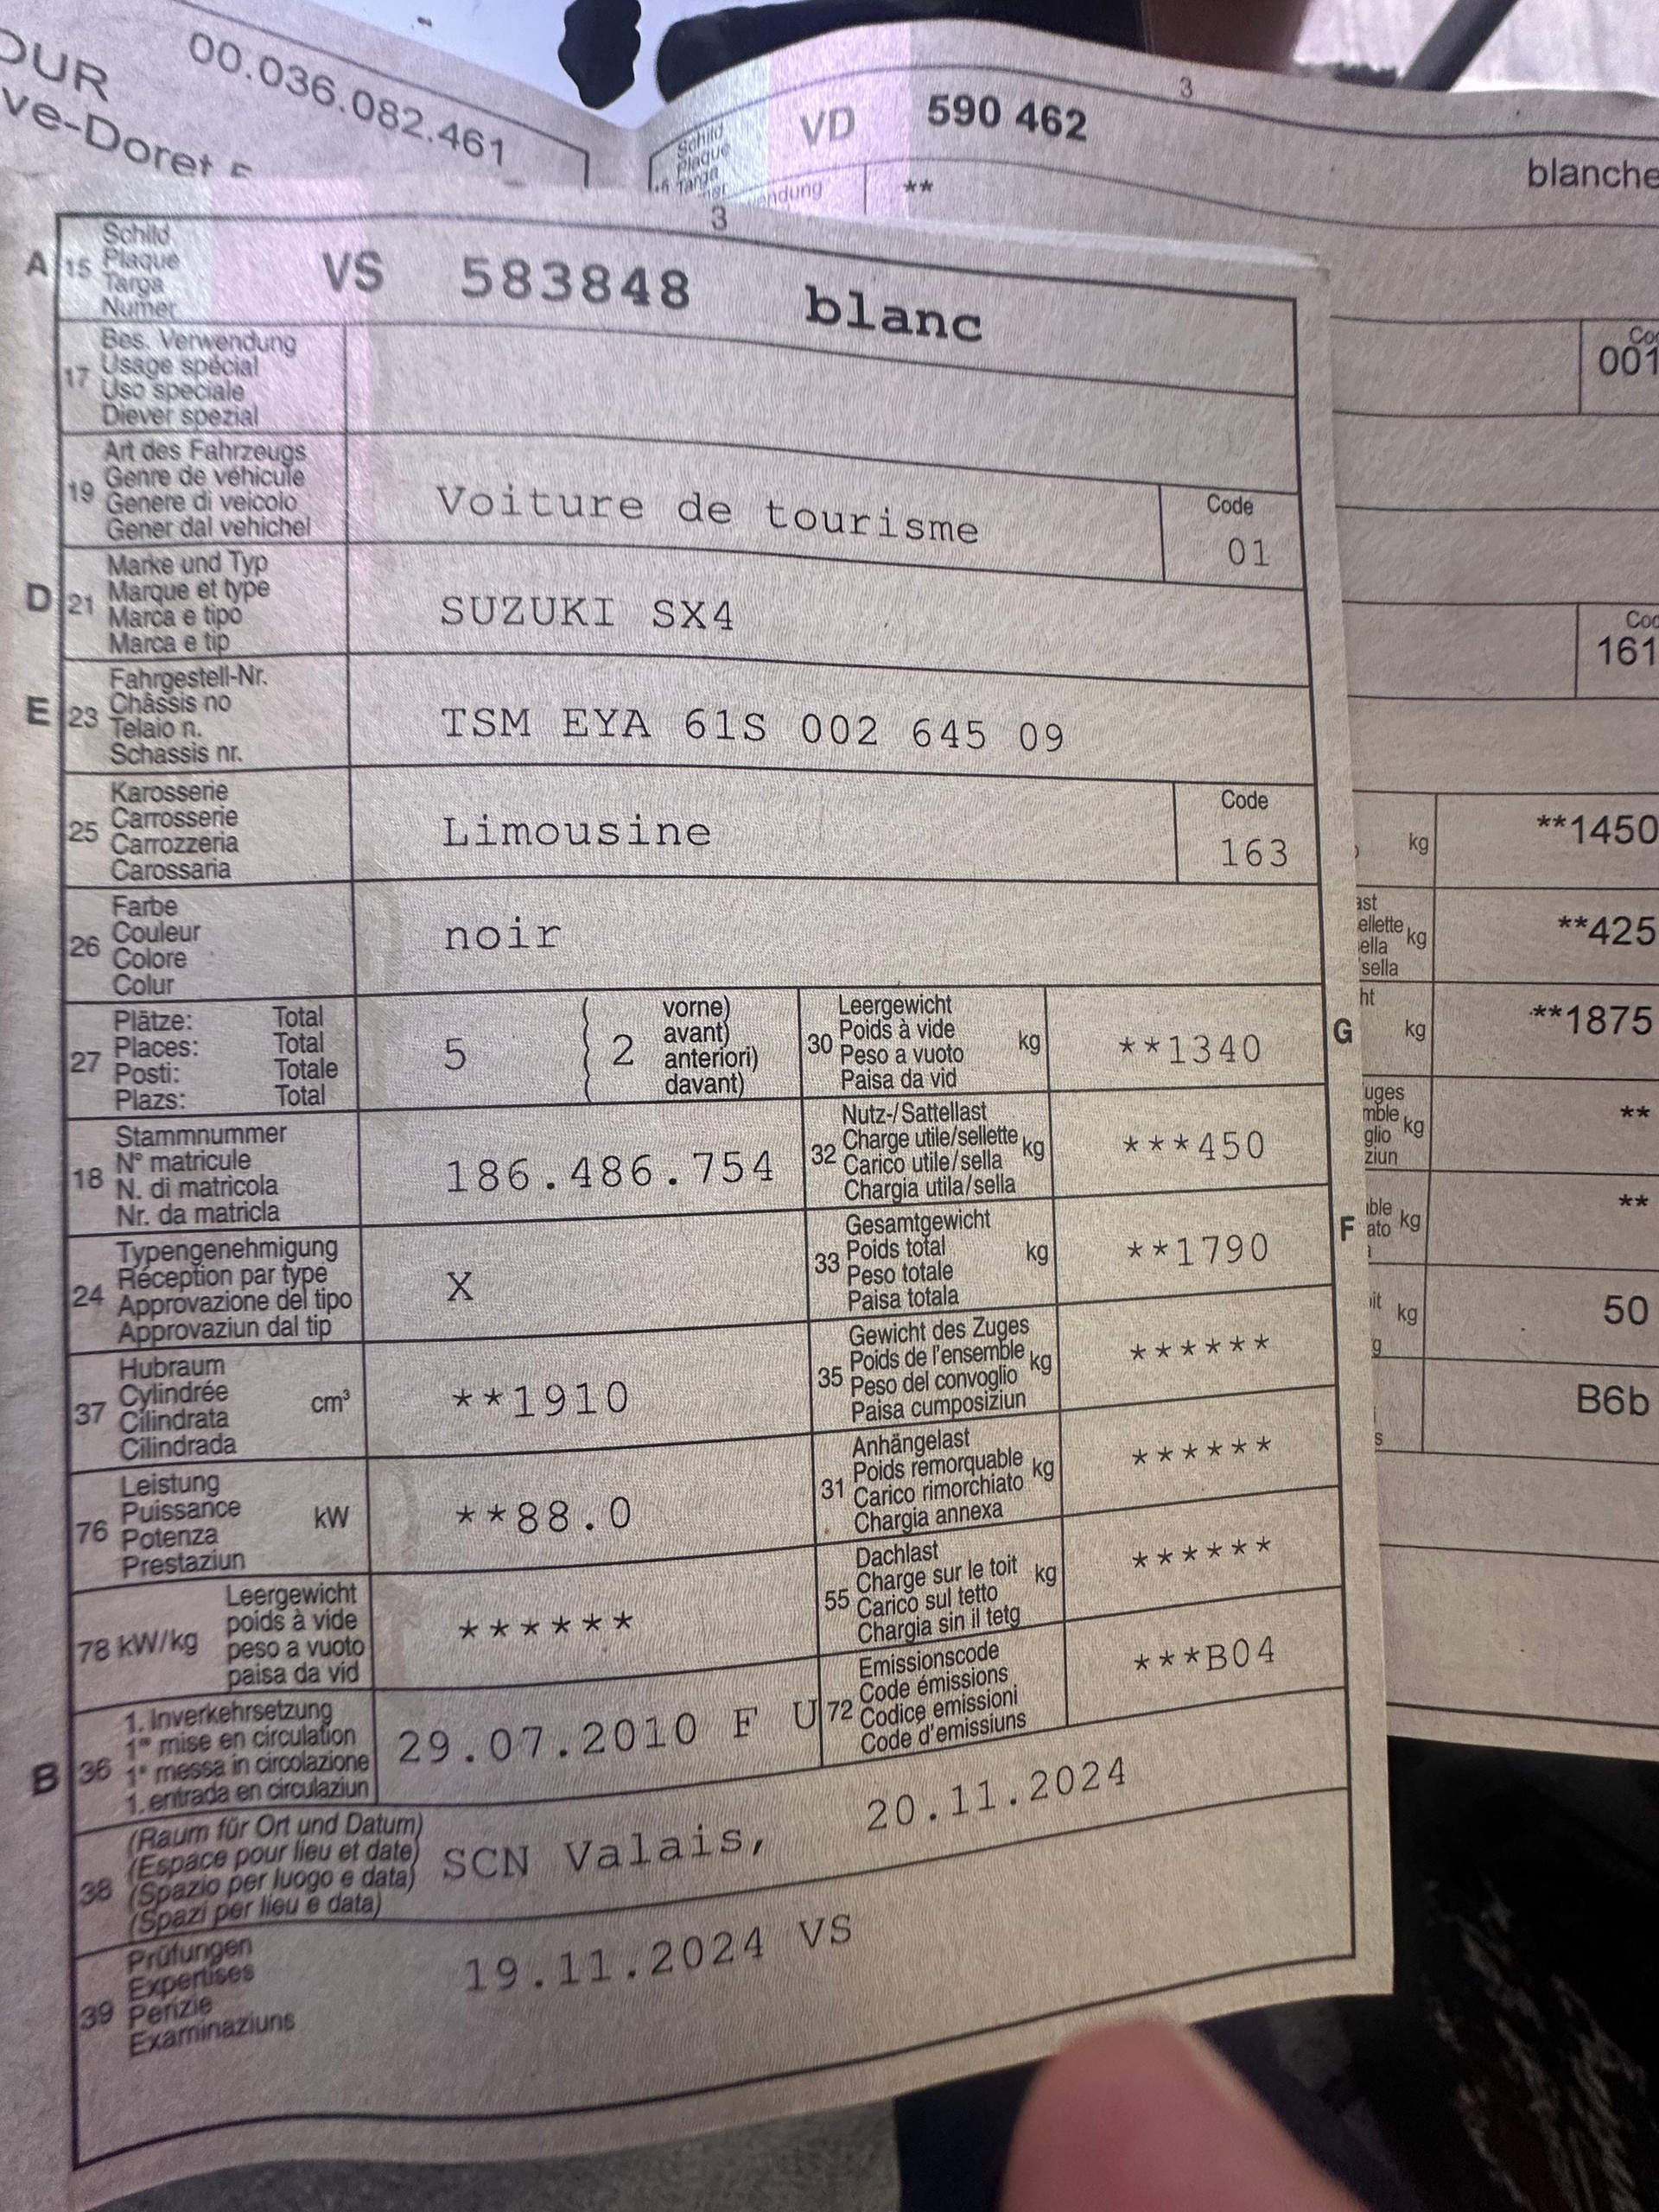 OUR
00.036.082.461
ve-Doret
3
Schild
Plaque
Targa
VD 590 462
blanche
**
3
A 15 Schild
Plaque
Targa
Numer
VS 583848 blanc
17 Bes. Verwendung
Usage spécial
Uso speciale
Diever spezial
19 Art des Fahrzeugs
Genre de véhicule
Genere di veicolo
Gener dal vehichel
Voiture de tourisme
Code
01
D 21 Marke und Typ
Marque et type
Marca e tipo
Marca e tip
SUZUKI SX4
E 23 Fahrgestell-Nr.
Châssis no
Telaio n.
Schassis nr.
TSM EYA 61S 002 645 09
25 Karosserie
Carrosserie
Carrozzeria
Carossaria
Limousine
Code
163
26 Farbe
Couleur
Colore
Colur
noir
27 Plätze: Total
Places: Total
Posti: Totale
Plazs: Total
5 { 2
vorne)
avant)
anteriori)
davant)
30 Leergewicht
Poids à vide
Peso a vuoto
Paisa da vid
kg
**1340
18 Stammnummer
N° matricule
N. di matricola
Nr. da matricla
186.486.754
32 Nutz-/Sattellast
Charge utile/sellette
Carico utile/sella
Chargia utila/sella
kg
***450
24 Typengenehmigung
Réception par type
Approvazione del tipo
Approvaziun dal tip
X
33 Gesamtgewicht
Poids total
Peso totale
Paisa totala
kg
**1790
37 Hubraum
Cylindrée
Cilindrata
Cilindrada
cm³
**1910
35 Gewicht des Zuges
Poids de l'ensemble
Peso del convoglio
Paisa cumposiziun
kg
******
76 Leistung
Puissance
Potenza
Prestaziun
kW
**88.0
31 Anhängelast
Poids remorquable
Carico rimorchiato
Chargia annexa
kg
******
78 kW/kg
Leergewicht
poids à vide
peso a vuoto
paisa da vid
******
55 Dachlast
Charge sur le toit
Carico sul tetto
Chargia sin il tetg
kg
******
B 36 1. Inverkehrsetzung
1re mise en circulation
1a messa in circolazione
1. entrada en circulaziun
29.07.2010 F U
72 Emissionscode
Code émissions
Codice emissioni
Code d'emissiuns
***B04
38 (Raum für Ort und Datum)
(Espace pour lieu et date)
(Spazio per luogo e data)
(Spazi per lieu e data)
SCN Valais, 20.11.2024
39 Prüfungen
Expertises
Perizie
Examinaziuns
19.11.2024 VS
001
161
kg **1450
ellette
ella
sella
kg **425
G
kg **1875
uges
mble
glio
ziun
kg **
F
kg **
kg 50
B6b